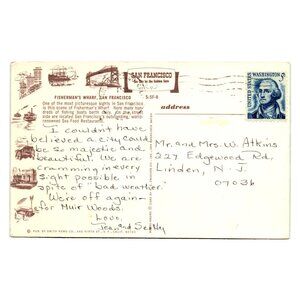 FISHERMAN'S WHARF, SAN FRANCISCO
One of the most picturesque sights in San Francisco
is this scene of Fisherman's Wharf. Here many hun-
dreds of fishing boats berth daily. On the
side are located San Francisco's outstanding, world-
renowned Sea Food Restaurants.
SAN FRANCISCO
address
UNITED STATES
WASHINGTON 5c
I couldn't have
believed a city could
be so majestic and
beautiful. We are
cramming in every
sight possible in
spite of "bad weather."
We're off again-
for Muir Woods.
Love,
Mr. and Mrs. W. Atkins
227 Edgewood Rd.
Linden, N. J.
07036